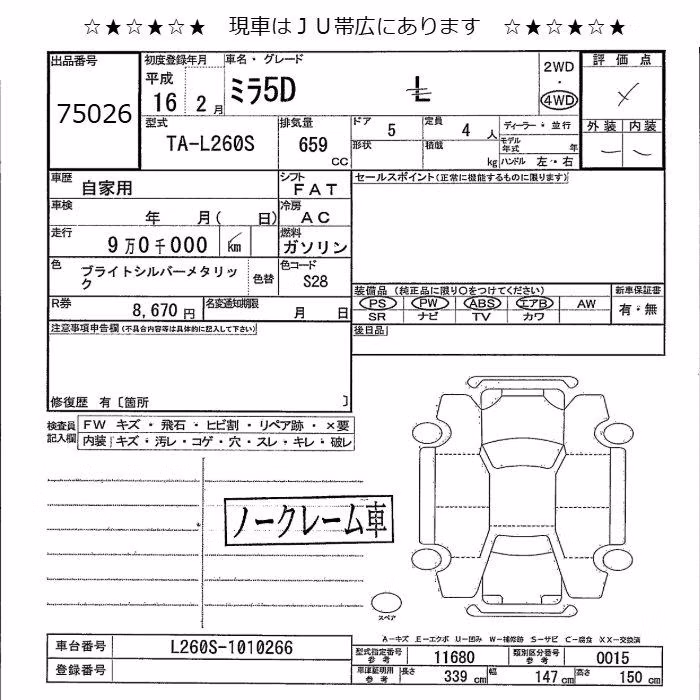 ☆★☆★☆★ 現車はＪＵ帯広にあります ☆★☆★☆★
出品番号 初度登録年月 車名・グレード 2WD・4WD 評価点
75026 平成 16 2月 ミラ5D L
外装 内装
型式 TA-L260S 排気量 659 CC ドア 5 定員 4 人 ディーラー・並行
形状 積載 kg モデル年式 年 ハンドル 左・右
車歴 自家用 シフト FAT セールスポイント(正常に機能するものに限ります)
車検 年 月( 日) 冷房 AC
走行 9万0千000 km 燃料 ガソリン
色 ブライトシルバーメタリック 色替 色コード S28
装備品 (純正品に限り○をつけてください) 新車保証書
PS PW ABS エアB AW 有・無
SR ナビ TV カワ
R券 8,670円 名変通知期限 月 日
後日品
注意事項申告欄(不具合内容等は具体的に記入して下さい)
修復歴 有〔箇所 〕
検査員記入欄 FW キズ・飛石・ヒビ割・リペア跡・×要
内装 キズ・汚レ・コゲ・穴・スレ・キレ・破レ
ノークレーム車
スペア
A-キズ E-エクボ U-凹み W-補修跡 S-サビ C-腐食 XX-交換済
車台番号 L260S-1010266 型式指定番号 参考 11680 類別区分番号 参考 0015
登録番号 車庫証明用 参考 長さ 339 cm 幅 147 cm 高さ 150 cm